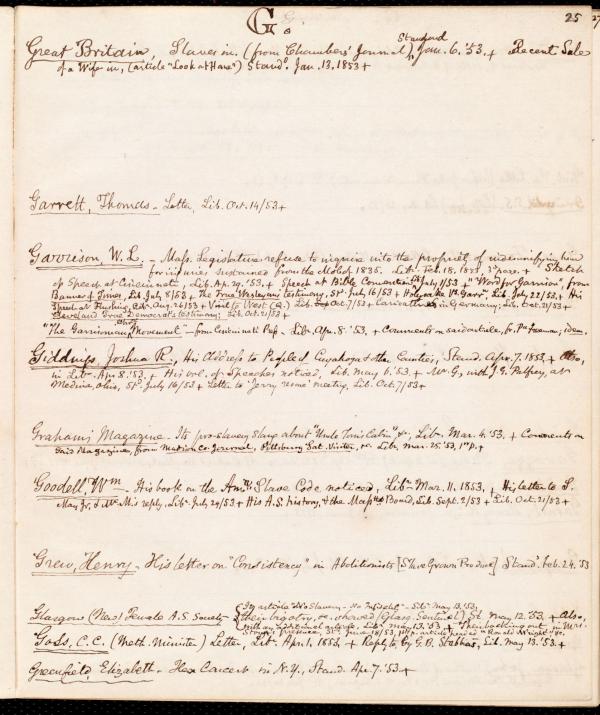 G.
25
27
Great Britain, Slavery in. (from Chambers' Journal), Standard Jan. 6. '53. + Recent Sale
of a Wife in, (article "Look at Home") Standd. Jan. 13, 1853 +
Garrett, Thomas - Letter, Lib. Oct. 14/53 +
Garrison, W. L. - Mass. Legislature refuse to inquire into the propriety of indemnifying him
for injuries sustained from the Mob of 1835. Libr. Feb. 18, 1853, 3d page. + Sketch
of Speech at Cincinnati, Lib. Ap. 29. '53. + Speech at Bible Convention Lib July 1/53 + "Word for Garrison", from
Banner of Times, Lib. July 8/53 + The True Wesleyan's testimony, St. July 16/53 + Holyoake vs. Garrn., Lib. July 22/53 + His
Speech at Flushing, Aug. 26/53 + Visit to West Lib. Oct. 7/53 + Caricature in Germany; Lib. Oct. 21/53 +
Cleveland True Democrat's testimony; Lib. Oct. 21/53 +
"The Garrisonian Movement" - from Cincinnati Pap. - Lib. Apr. 8. '53. + Comments on said article, fr. Pa. Freeman, idem.
Giddings, Joshua R., His Address to People of Cuyahoga & other Counties, Stand. Apr. 7. 1853. + Also,
in Libr. Apr. 8. '53. + His vol. of Speeches noticed, Lib. May 6. '53. + Mr. G., with J. G. Palfrey, at
Medina, Ohio, St. July 16/53 + Letter to 'Jerry rescue' meeting, Lib. Oct. 7/53 +
Graham's Magazine - Its pro-slavery slang about "Uncle Tom's Cabin" &c., Libr. Mar. 4. '53. + Comments on
said Magazine, from Madison Co. Journal, Pittsburg Sat. Visiter, &c. Lib. Mar. 25. '53, 1st p. +
Goodell, Wm. - His book on the Amn. Slave Code noticed, Libr. Mar. 11. 1853. + His letter to S.
May Jr., & Mr. M's reply, Libr. July 29/53 + His A.S. history, & the Mass. Board, Lib. Sept. 2/53 + Lib. Oct. 21/53 +
Grew, Henry - His letter on "Consistency" in Abolitionists [Slave Grown Produce] Standd. Feb. 24. '53
Glasgow (New) Female A. S. Society - Its article "No Slavery - No Infidels" - Libr. May 13. '53,
their bigotry, &c. showed (Glasg. Sentinel) St. May 12. '53. + Also,
with an additional article, Libr. May 13. '53 + Their backing out, in Mrs.
Stowe's presence, St. June 18/53, 1st p. article headed "Ronald Wright" &c.
Goss, C. C. (Meth. Minister) Letter, Lib. Apr. 1. 1853. + Reply to, by G. B. Stebbins, Lib. May 13. '53. +
Greenfield, Elizabeth - Her Concert in N.Y., Stand. Apr. 7. '53 +